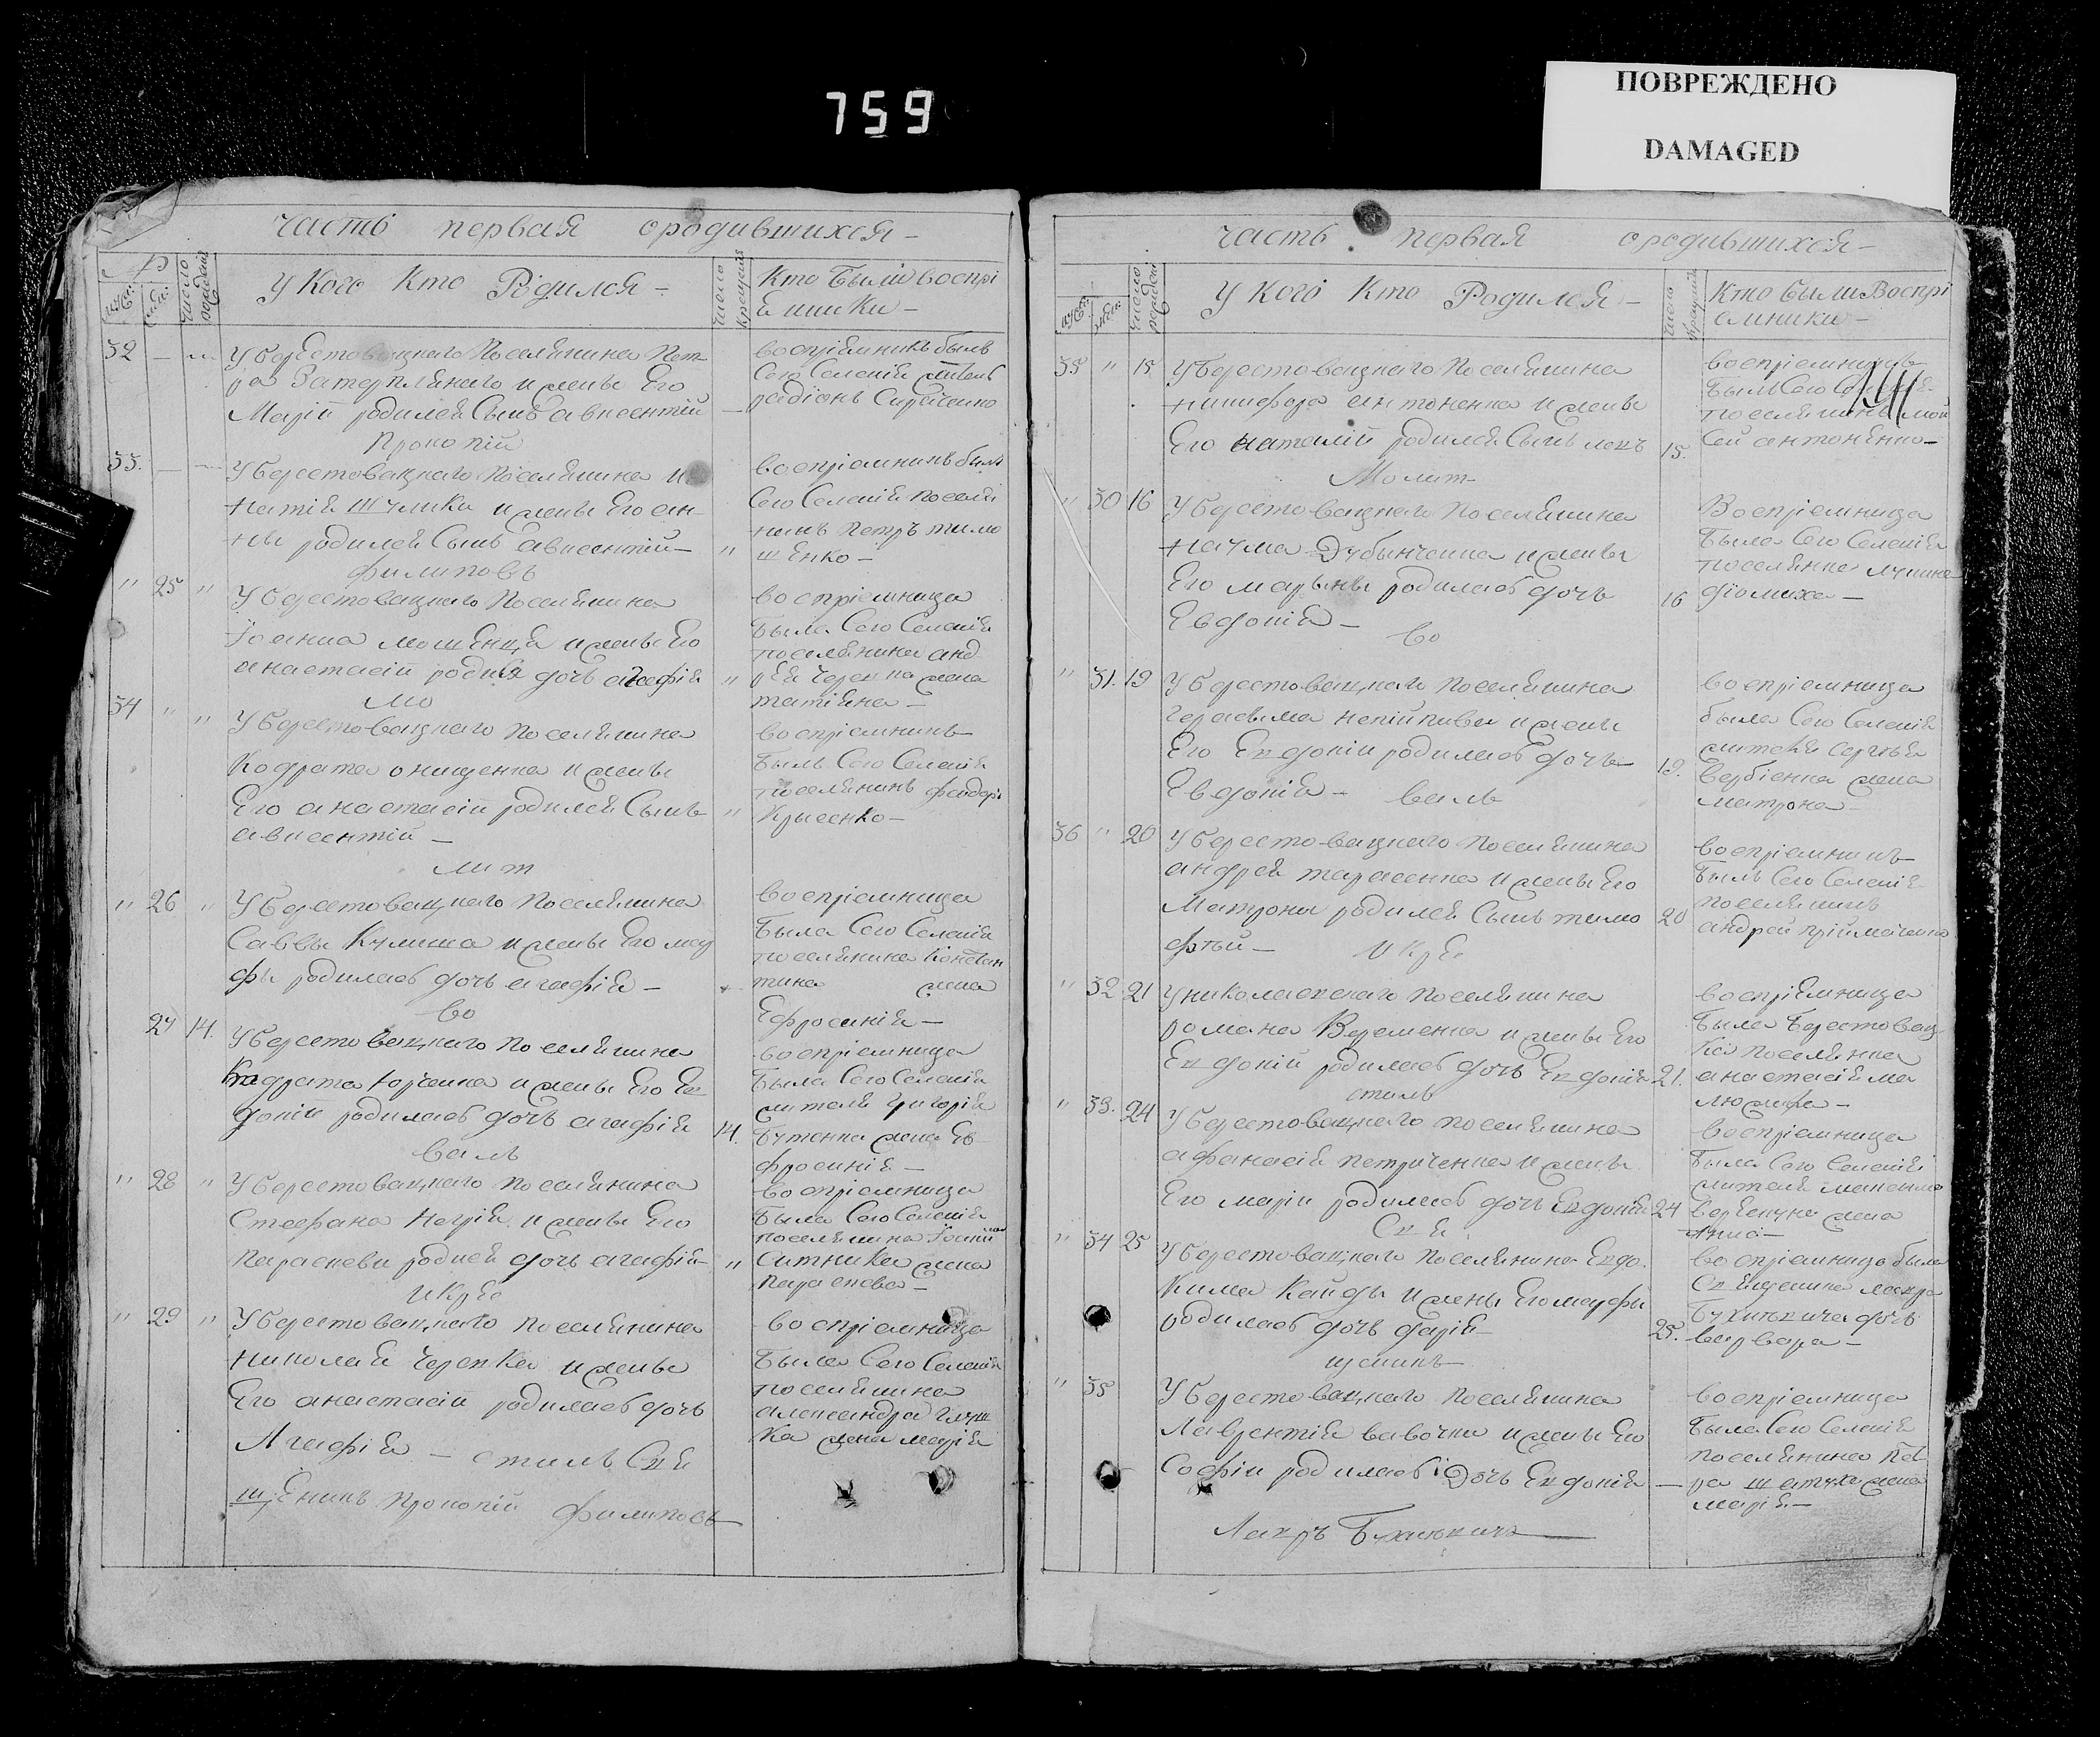 759
ПОВРЕЖДЕНО
DAMAGED
часть первая ородившихся
У Кого Кто Родился
число крещения
Кто Были воспрі
Емники
32
У берестовацкаго Поселянина Пет
ра Затерпляного и жены Его
Маріи родился Сынъ авксентій
Прокопій
воспріемникъ былъ
Сего Селенія житель
радіонъ
33
У берестовацкаго поселянина
натія Шулика и жены Его ан
ны родился Сынъ авксентій
филиповъ
воспріемникъ былъ
Сего Селенія поселя
нинъ петръ тимо
шЕнко
" 25 "
У берестовацкаго Поселянина
Іоанна мошЕнца и жены Его
анастасіи родися дочь агафія
мо
воспріемница
была Сего Селенія
поселянина анд
рея жена
татіяна
34 " "
У берестовацкаго поселянина
Кодрата онищенка и жены
Его анастасіи родился Сынъ
авксентій
лит
воспріемникъ
былъ Сего Селенія
поселянинъ
Крысенко
" 26 "
У берестовацкаго поселянина
Саввы Кулиша и жены Его мар
фы родилась дочь агафія
во
воспріемница
Была Сего Селенія
поселянина Констан
тина жена
Ефросинія
27 14.
У берестовацкаго поселянина
Кадрата и жены Его Ев
докіи родилась дочь агафія 14.
валъ
воспріемница
была Сего Селенія
жителя григорія
Бутенка жена Ев
фросинія
" 28 "
У берестовацкаго поселянина
Стефана Негрія и жены Его
параскеви родися дочь агафія "
и Кре
воспріемница
Была Сего Селенія
поселянина
Ситника жена
параскева
" 29 "
У берестовацкаго поселянина
николая Черевка и жены
Его анастасіи родилась дочь
Агафія стилъ Свя
воспріемница
Была Сего Селенія
поселянина
александра
ка жена марія
щЕникъ Прокопій филиповъ
часть первая ородившихся
У Кого Кто Родился
Кто были Воспрі
емники
35 " 15
У берестовацкаго поселянина
никифора антоненка и жены
Его наталіи родился Сынъ 15.
Молит
воспріемникъ
былъ Сего
поселянинъ мой
Сей антонЕнко
" 30 16
У берестовацкаго поселянина
наума Дубынченка и жены
Его марыны родилась дочь 16
Евдокія
во
Воспріемница
была Сего Селенія
поселянка
" 31. 19
У берестовацкаго поселянина
герасима непійпивы и жены
Его Евдокіи родилась дочь 19.
Евдокія валъ
воспріемница
была Сего Селенія
жителя сергея
вербіенка жена
матрона
36 " 20
У берестовацкаго поселянина
андрея тарасенка и жены Его
Матроны родился Сынъ тимо 20
фтый
и Кре
воспріемникъ
Былъ Сего Селенія
поселянинъ
андрей
" 32 21
У николаевскаго поселянина
романа Веременка и жены Его
Евдокіи родилась дочь Евдокія 21.
стилъ
воспріЕмница
была Берестовац
Ка поселянка
анастасія ма
" 33. 24
У берестовацкаго поселянина
афанасія петриченка и жены
Его маріи родилась дочь Евдокія 24
Свя
воспріемница
Была Сего Селенія
жителя максима
жена
анна
" 34 25
У берестовацкаго поселянина Евдо
Кима Кайды и жены Его марфы
родилась дочь дарія 25.
щеникъ
воспріемница была
Священника лавра
дочь
варвара
" 35
У берестовацкаго поселянина
Лаврентія вавочки и жены Его
Софіи родилась Дочь Евдокія
воспріемница
была Сего Селенія
поселянина Пет
ра жена
марія
Лавръ